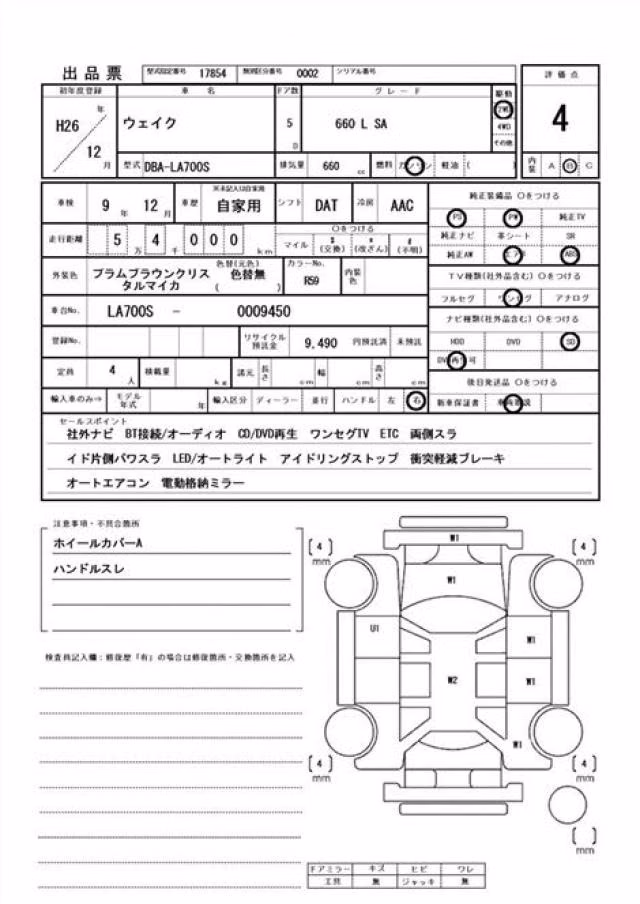 出品票 型式指定番号 17854 類別区分番号 0002 シリアル番号
初年度登録 車名 ドア数 グレード 駆動 評価点
H26 年 12 月 ウェイク 5 D 660 L SA 2WD 4WD その他 4
型式 DBA-LA700S 排気量 660 cc 燃料 ガソリン 軽油 ( ) 内装 A B C
車検 9 年 12 月 車歴 ※未記入は自家用 自家用 シフト DAT 冷房 AAC 純正装備品 ○をつける
走行距離 5 万 4 千 0 0 0 km ○をつける マイル $ (交換) * (改ざん) # (不明) PS PW 純正TV
純正ナビ 革シート SR
純正AW エアB ABS
外装色 プラムブラウンクリスタルマイカ 色替(元色) 色替無 ( ) カラーNo. R59 内装色 TV種類(社外品含む) ○をつける
フルセグ ワンセグ アナログ
車台No. LA700S - 0009450 ナビ種類(社外品含む) ○をつける
登録No. リサイクル預託金 9,490 円預託済 未預託 HDD DVD SD
DVD再生可
定員 4 人 積載量 kg 諸元 長さ cm 幅 cm 高さ cm 後日発送品 ○をつける
輸入車のみ⇒ モデル年式 年 輸入区分 ディーラー 並行 ハンドル 左 右 新車保証書
セールスポイント
社外ナビ BT接続/オーディオ CD/DVD再生 ワンセグTV ETC 両側スラ
イド片側パワスラ LED/オートライト アイドリングストップ 衝突軽減ブレーキ
オートエアコン 電動格納ミラー
注意事項・不具合箇所
ホイールカバーA
ハンドルスレ
検査員記入欄：修復歴「有」の場合は修復箇所・交換箇所を記入
W1
[4] mm [4] mm
W1
U1 W1
W2 W1
W1
[4] mm [4] mm
[ ] mm
ドアミラー キズ ヒビ ワレ
工具 無 ジャッキ 無